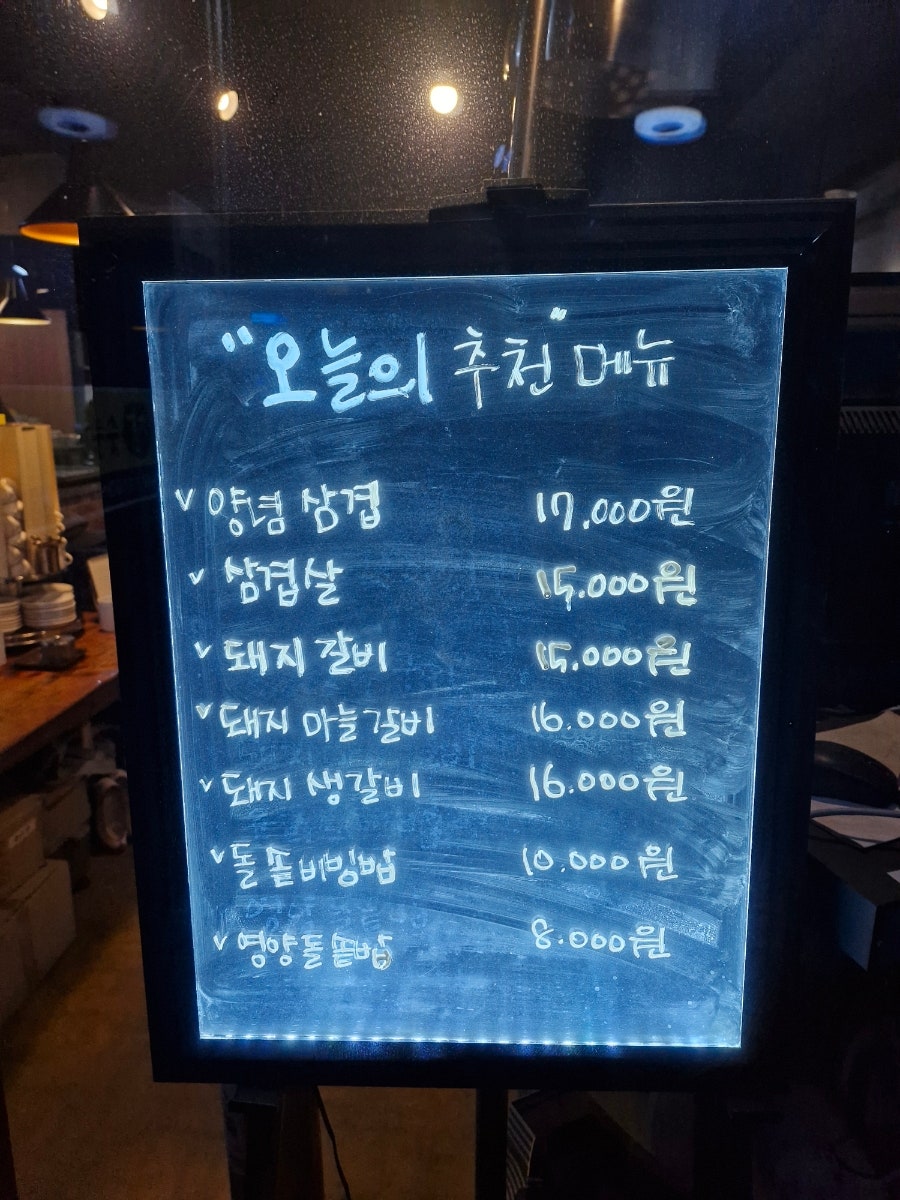 "오늘의 추천" 메뉴
v 양념 삼겹 17,000원
v 삼겹살 15.000원
v 돼지 갈비 15.000원
v 돼지 마늘갈비 16.000원
v 돼지 생갈비 16.000원
v 돌솥비빔밥 10.000원
v 영양돌솥밥 8.000원